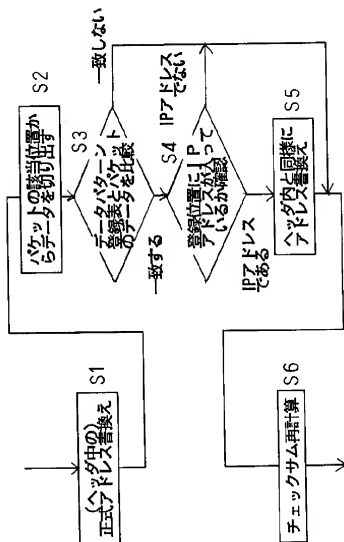 S1
(ヘッダ中の)
正式アドレス書換え
S2
パケットの該当位置か
らデータを切り出す
S3
データパタント
登録表とパケット
のデータを比較
一致しない
一致する
S4
登録位置にIP
アドレスが入って
いるか確認
IPアドレス
でない
IPアドレス
である
S5
ヘッダ内と同様に
アドレス書換え
S6
チェックサム再計算